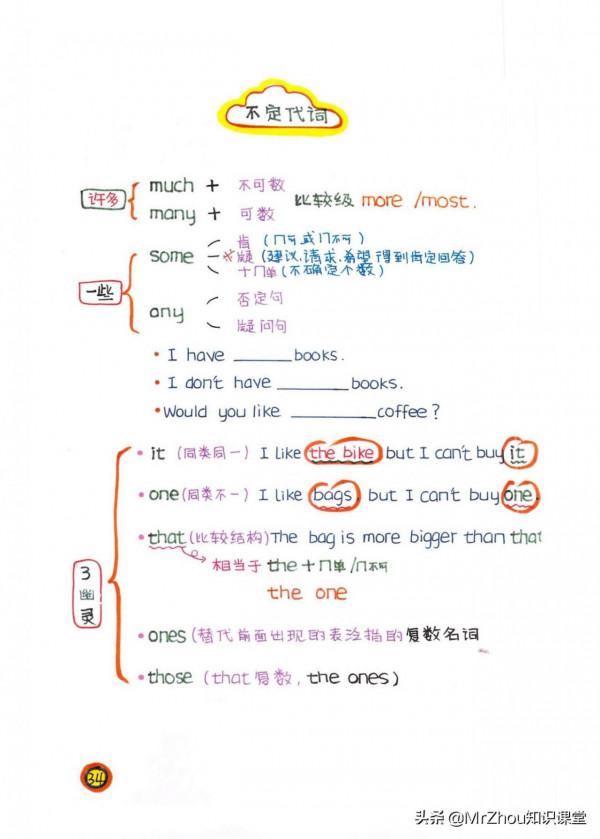 不定代词
许多
much + 不可数
many + 可数
比较级 more /most.
一些
some
肯 (冂可或冂不可)
*疑 (建议.请求.希望得到肯定回答)
十冂单 (不确定个数)
any
否定句
疑问句
• I have ______books.
• I don't have ________books.
• Would you like __________coffee?
3幽灵
• it (同类同一) I like the bike but I can't buy it
• one(同类不一) I like bags, but I can't buy one.
• that(比较结构)The bag is more bigger than that
相当于 the + 冂单/冂不可
the one
• ones (替代前面出现的表泛指的复数名词
• those (that复数, the ones)
34
头条 @MrZhou知识课堂